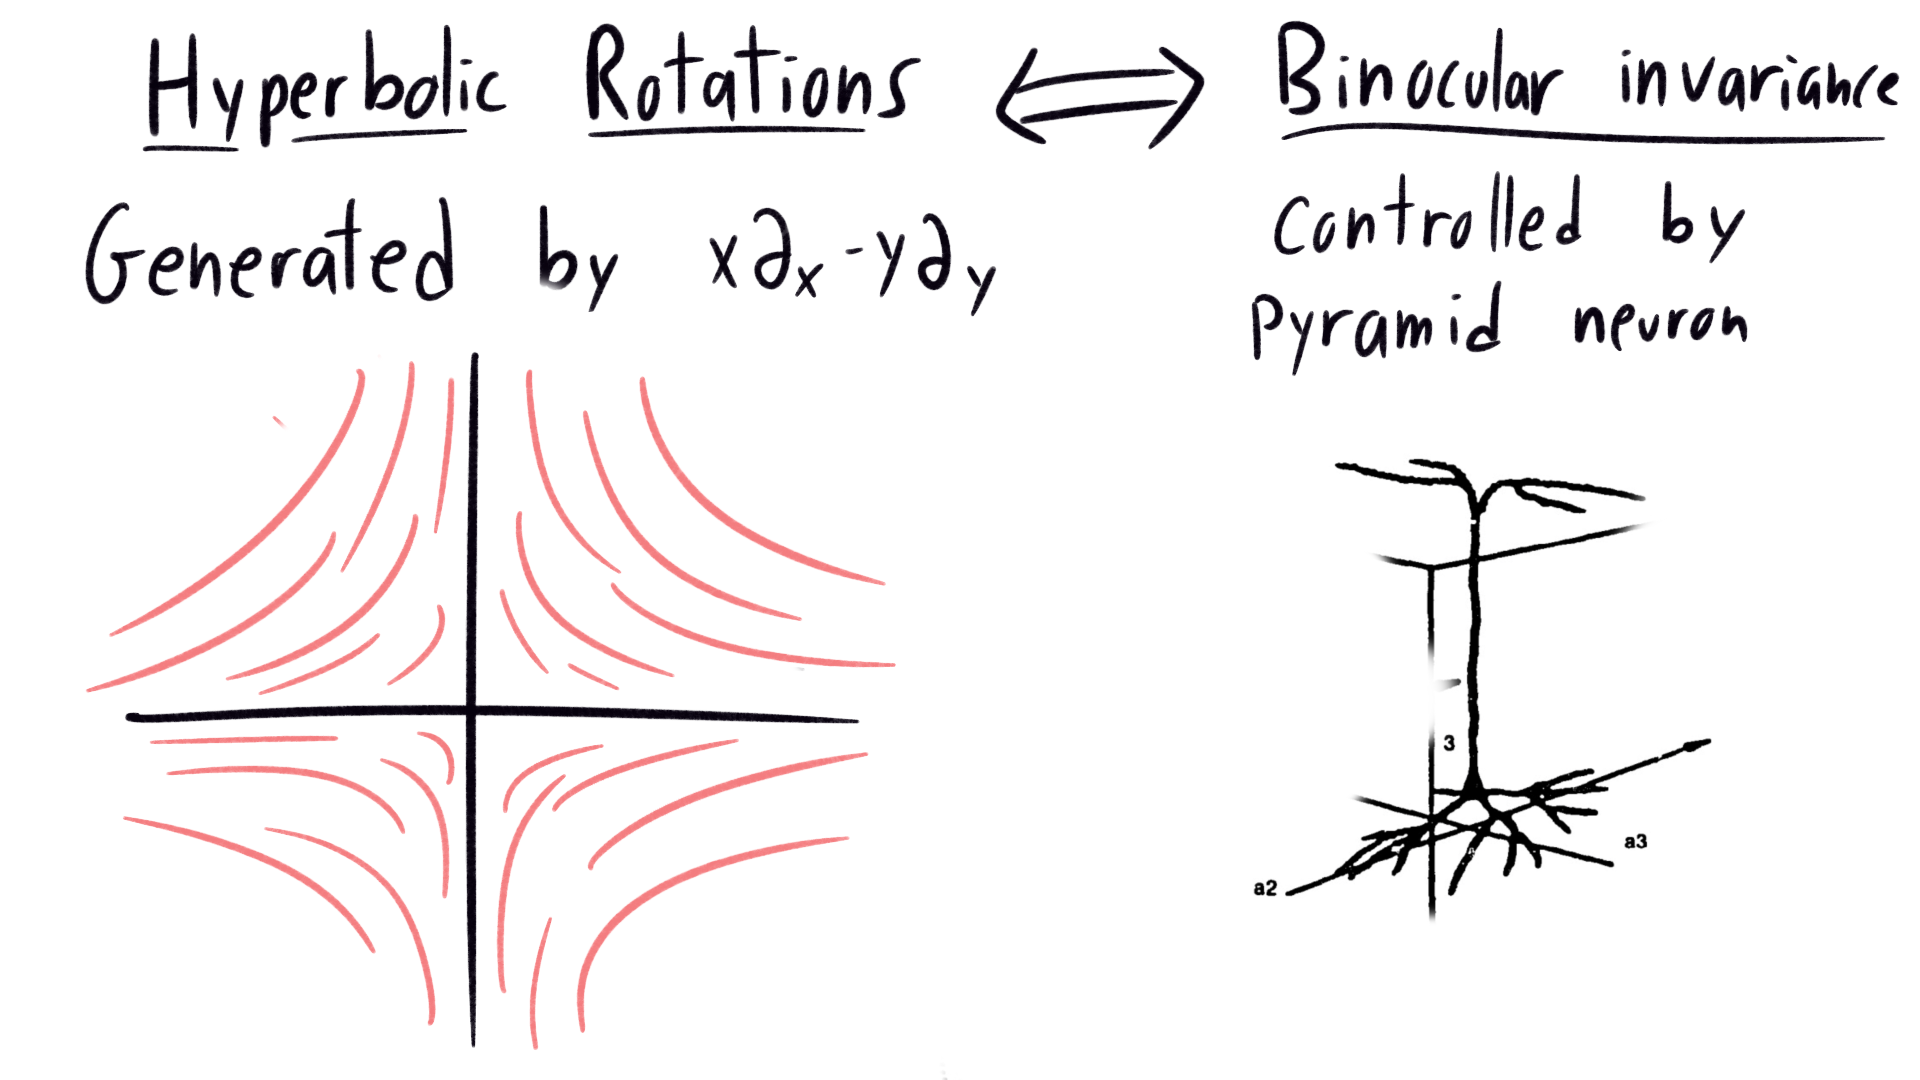 Hyperbolic Rotations ⟺ Binocular invariance
Generated by x∂x - y∂y
Controlled by
pyramid neuron
3
a3
a2